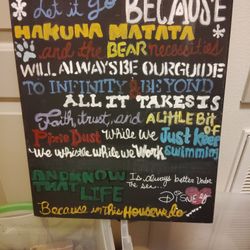 Let it go BECAUSE
HAKUNA MATATA
and the BEAR necessities
WILL ALWAYS BE OUR GUIDE
TO INFINITY & BEYOND
ALL IT TAKES IS
Faith, trust, and A LITTLE BIT OF
Pixie Dust While we Just Keep
we whistle While we Work Swimming
AND KNOW THAT LIFE
Is always better Under the sea...
DISNEY
Because in this House we do